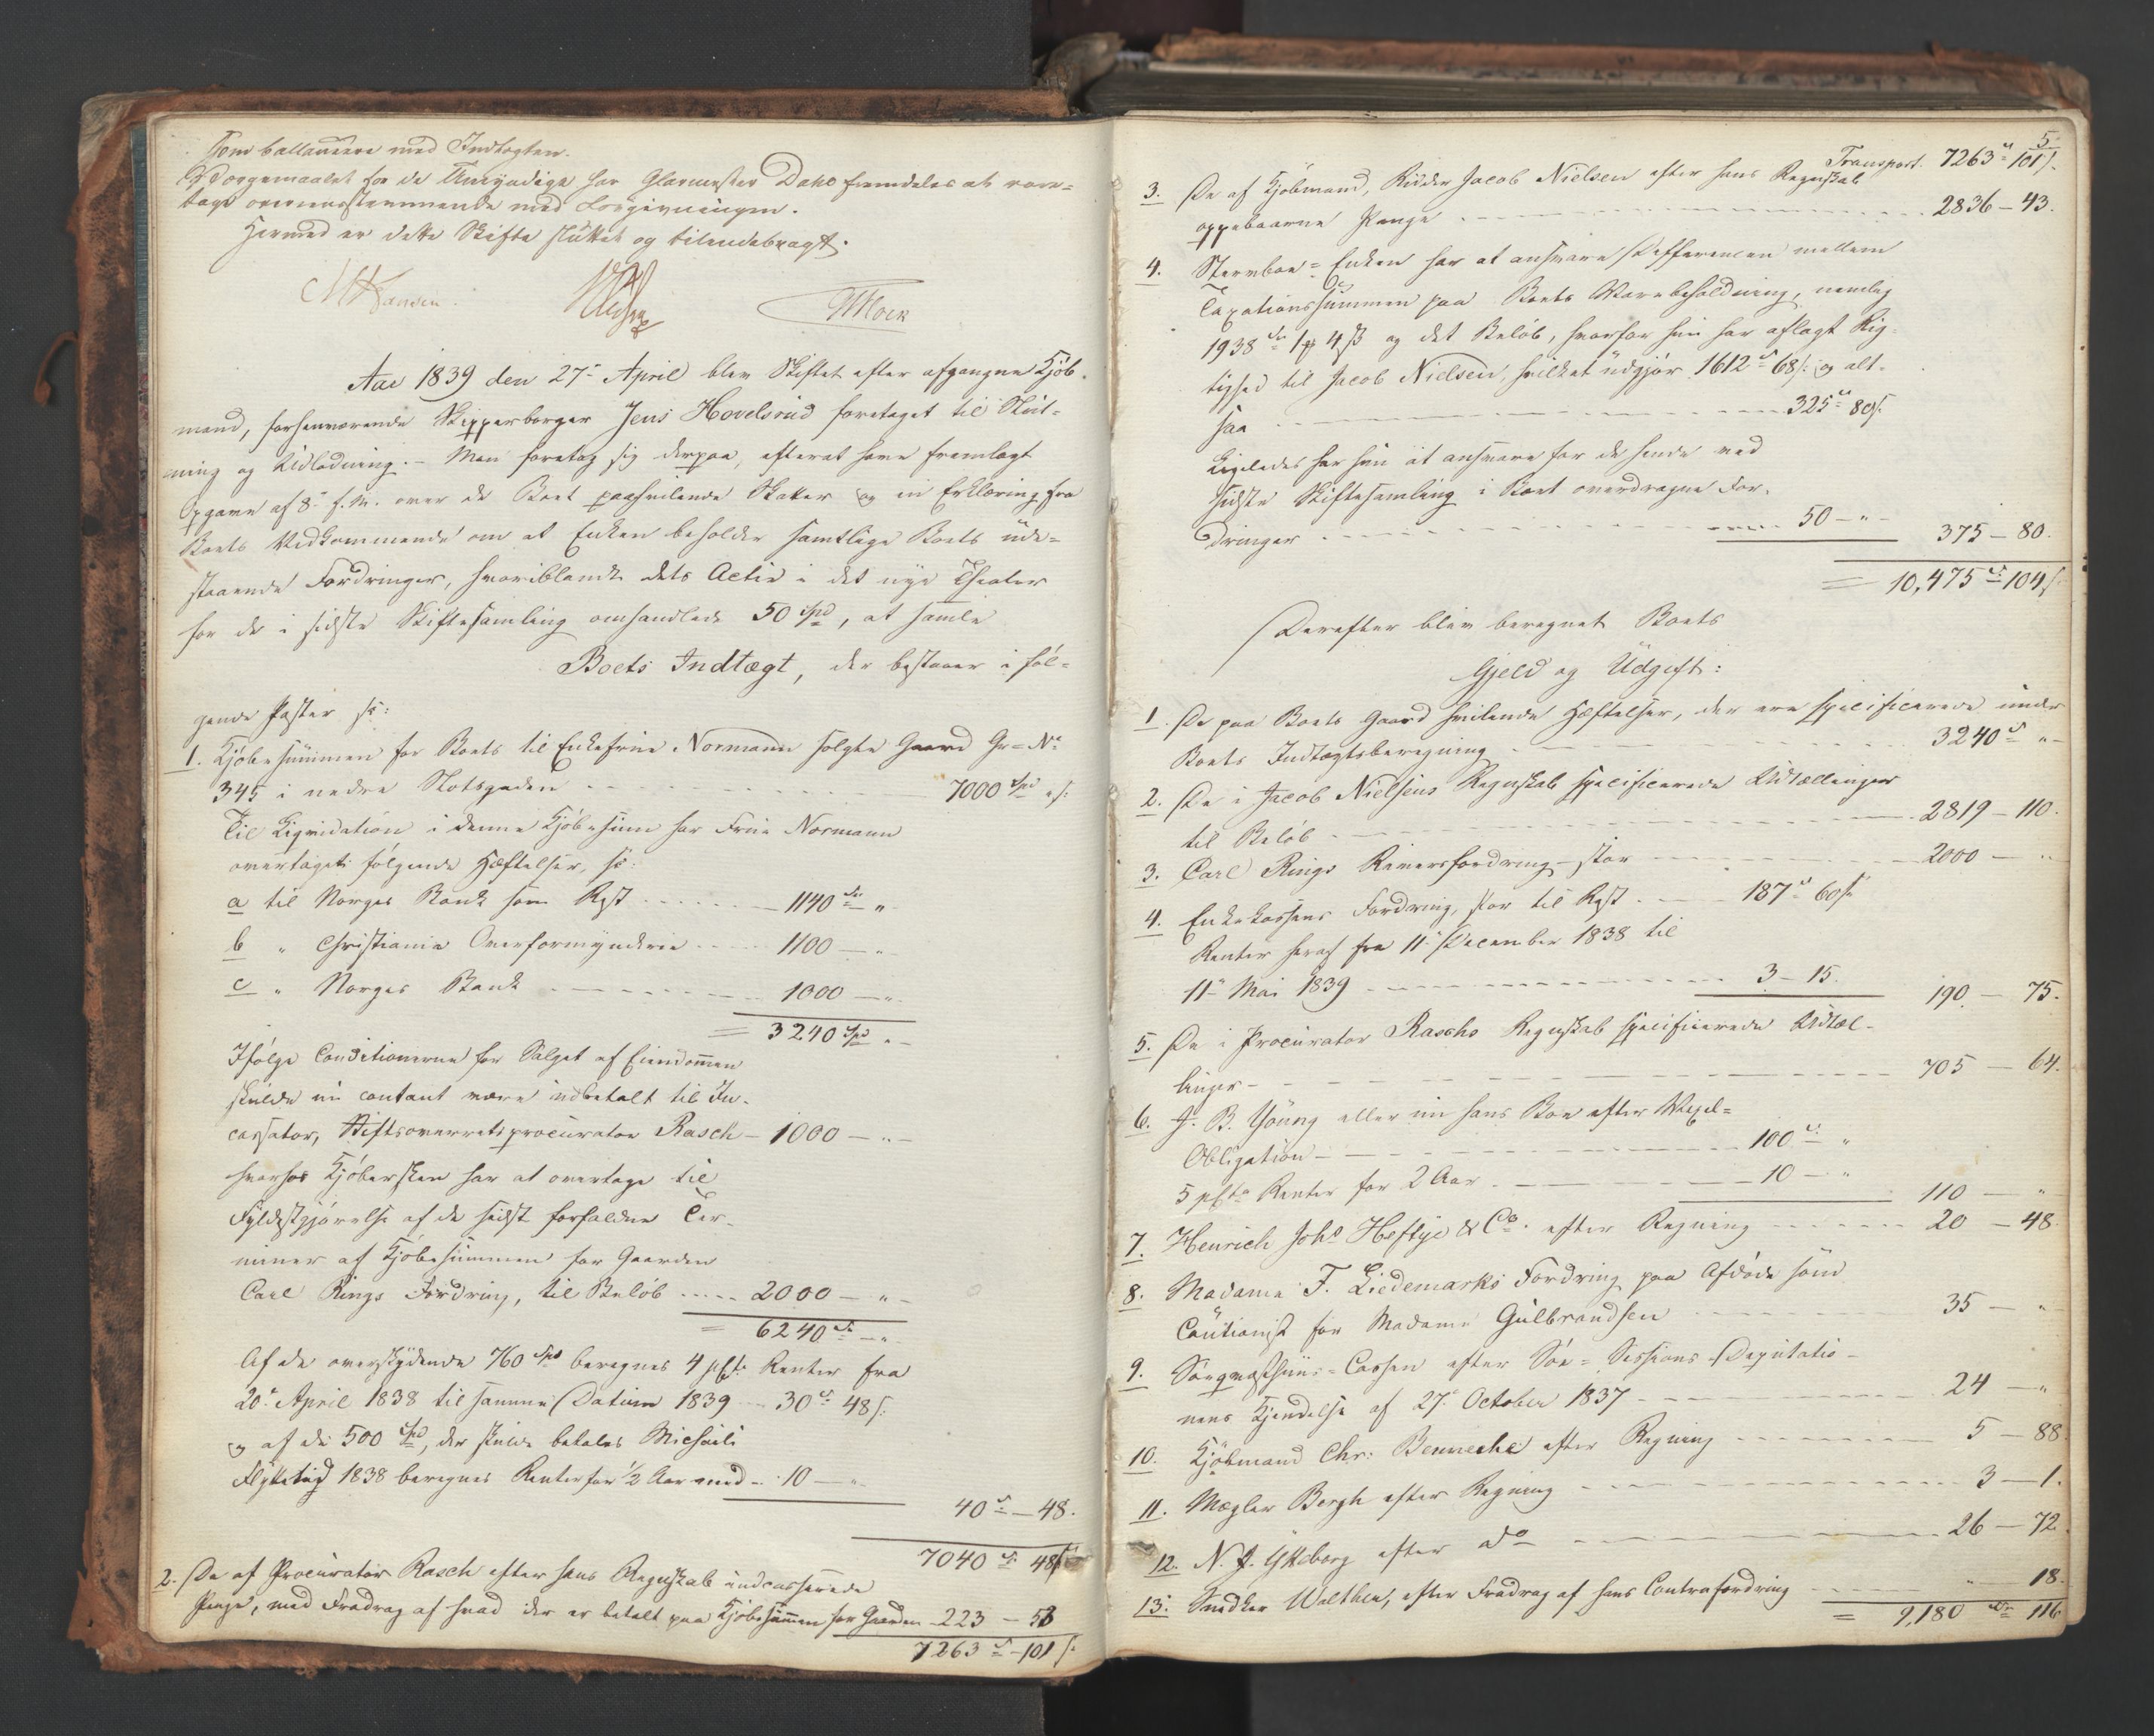 som ballancere med Indtægten.
Værgemaalet for de Umyndige har Glarmester Dahs fremdeles at vare-
tage overeensstemmende med Lovgivningen.
Hermed er dette Skifte sluttet og tilendebragt.
MHansen. GMock
Aar 1839 den 27de April blev Skiftet efter afgangne Kjøb-
mand, forhenværende Skipperborger Jens Hovelsrud foretaget til Slut-
ning og Udlodning. – Man foretog sig derpaa, efterat have fremlagt
Opgave af 8de f. M. over de Boet paahvilende Skatter og en Erklæring fra
Boets Vedkommende om at Enken beholder samtlige Boets ude-
staaende Fordringer, hvoriblandt dets Actie i det nye Theater
for de i sidste Skiftesamling omhandlede 50 Spd, at samle
Boets Indtægt, der bestaaer i føl-
gende Poster sc:
1. Kjøbesummen for Boets til Enkefrue Normann solgte Gaard Gr=No
345 i nedre Slotsgaden 7000 Spd " s:
Til Liqvidation i denne Kjøbesum har Frue Normann
overtaget følgende Hæftelser, sc:
a til Norges Bank som Rest 1140 Spd "
b " Christiania Overformynderie 1100 – "
c " Norges Bank 1000 – "
= 3240 Spd " –
Ifølge Conditionerne for Salget af Eiendommen
skulde nu contant være indbetalt til In-
cassator, Stiftsoverretsprocurator Rasch – 1000 – " –
hvorhos Kjøbersken har at overtage til
Fyldestgjørelse af de sidst forfaldne Ter-
miner af Kjøbesummen for Gaarden
Carl Rings Fordring, til Beløb 2000 – " –
= 6240 Spd – " –
Af de overskydende 760 Spd beregnes 4 pCt Renter fra
20de April 1838 til samme Datum 1839 30 Spd 48 s:
og af de 500 Spd, der skulde betales Michaeli
Flyttetid 1838 beregnes Renter for 1/2 Aar med 10 – "
40 Spd – 48.
7040 Spd 48 s
2. De af Procurator Rasch efter hans Regnskab indcasserede
Penge, med Fradrag af hvad der er betalt paa Kjøbesummen for Gaarden 223 – 53
7263 Spd – 101 s:
5.
Transport. 7263 Spd 101 s.
3. De af Kjøbmand, Ridder Jacob Nielsen efter hans Regnskab
oppebaarne Penge 2836 – 43.
4. Stervboe=Enken har at ansvare Differencen mellem
Taxationssummen paa Boets Varebeholdning, nemlig
1938 Spd 1 # 4 ß og det Beløb, hvorfor hun har aflagt Rig-
tighed til Jacob Nielsen, hvilket udgjør 1612 Spd 68 s: og alt-
saa 325 Spd 80 s.
Ligeledes har hun at ansvare for de hende ved
sidste Skiftesamling i Boet overdragne For-
dringer 50 – " –
375 – 80.
= 10,475 Spd 104 s
Derefter blev beregnet Boets
Gjeld og Udgift:
1. De paa Boets Gaard hvilende Hæftelser, der ere specificerede under
Boets Indtægtsberegning 3240 Spd " –
2. De i Jacob Nielsens Regnskab specificerede Udtællinger
til Beløb 2819 – 110.
3. Carl Rings Reversfordring – stor 2000 – "
4. Enkekassens Fordring, stor til Rest 187 Spd 60 s
Renter heraf fra 11te December 1838 til
11te Mai 1839 3 – 15.
190 – 75.
5. De i Procurator Raschs Regnskab specificerede Udtæl-
linger 705 – 64.
6. J. B. Young eller nu hans Boe efter Vexel=
Obligation 100 Spd "
5 pCto Renter for 2 Aar 10 – "
110 – "
7. Henrich Johs Heftye & Co. efter Regning 20 – 48.
8. Madame F. Liedemarks Fordring paa Afdøde som
Cautionist for Madame Gulbrandsen 35 – "
9. Søeqvæsthuus=Cassen efter Søe=Sessions-Deputatio-
nens Kjendelse af 27de October 1837 24 – "
10. Kjøbmand Chr: Benneche efter Regning 5 – 88.
11. Mægler Bergh efter Regning 3 – 1.
12. N. J. Ytteborg efter do 26 – 72.
13. Snedker Walther, efter Fradrag af hans Contrafordring " 18.
= 9,180 Spd 116